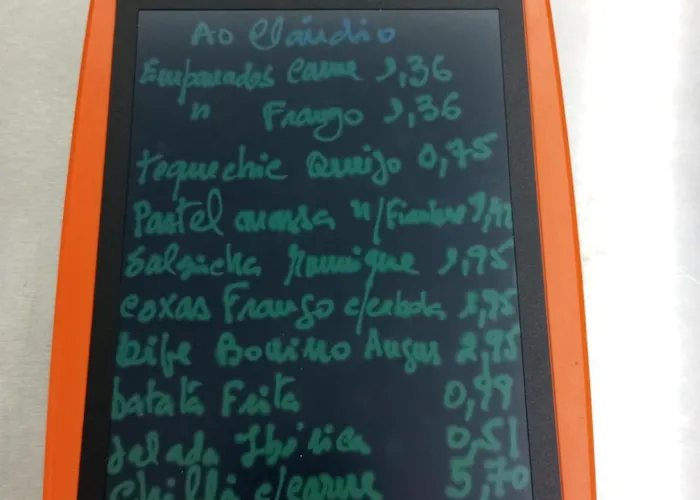 Ao Cláudio
Empanadas Carne 1,36
" Frango 1,36
tequechic Queijo 0,75
Pastel massa
Salsicha 1,95
coxas Frango c/cebola 1,95
bife Bovino Angus 2,95
batata Frita 0,99
Salada Ibérica 0,51
chilli c/carne 5,70